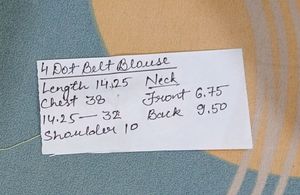 4 Dot Belt Blouse
Length 14.25 Neck
Chest 38 Front 6.75
14.25 — 32 Back 9.50
Shoulder 10